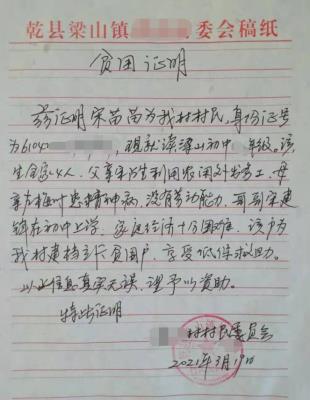 乾县梁山镇 委会稿纸
贫困证明
兹证明宋苗苗为我村村民,身份证号
为6104 ,现就读梁山初中 年级。该
生全家4人,父亲宋 生利用农闲外出务工,母
亲 梅叶患精神病,没有劳动能力,哥哥宋建
镇在初中上学,家庭经济十分困难,该户为
我村建档立卡贫困户,享受低保救助。
以上信息真实无误,望予以资助。
特此证明
村村民委员会
2021年3月19日